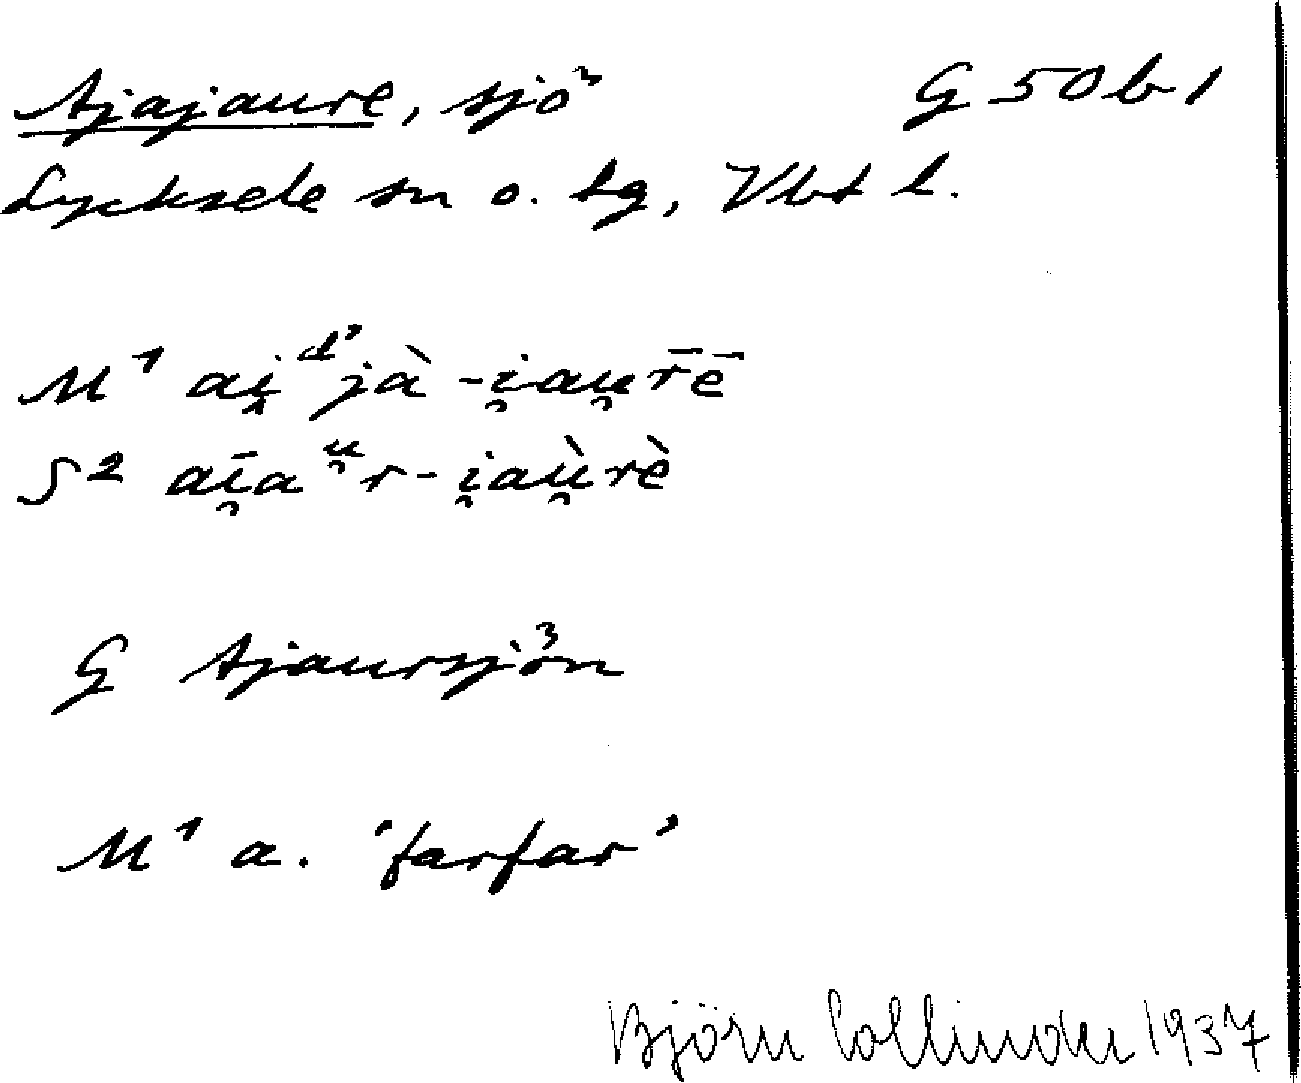 Ajajaure, sjö G 50 b 1
Lycksele sn o. tg, Vbt l.
M¹ ai̯ᵈ’jà -i̯au̯r̄ē
S² aī̯aᵘ̯r-i̯aù̯rè
G Ajaursjön
M¹ a. 'farfar'
Björn Collinder 1937